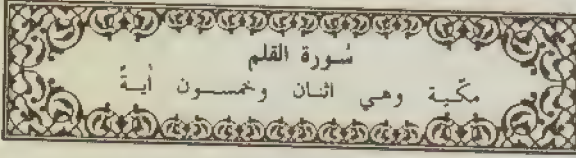 سورة القلم
مكّية وهي اثنان وخمسون أيةً